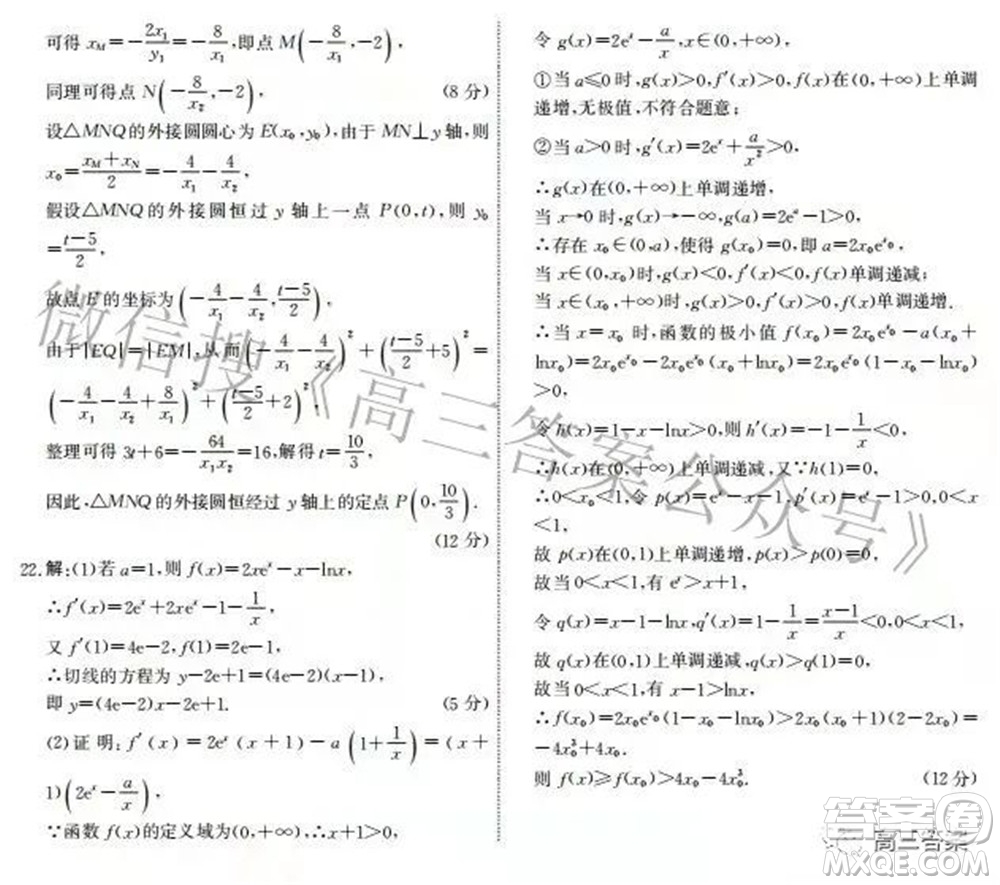 可得 x_M=-2x₁/y₁=-8/x₁,即点 M(-8/x₁,-2),
同理可得点 N(-8/x₂,-2), (8 分)
设△MNQ的外接圆圆心为 E(x₀,y₀),由于 MN⊥y 轴,则
x₀=(x_M+x_N)/2=-4/x₁-4/x₂,
假设△MNQ 的外接圆恒过 y 轴上一点 P(0,t),则 y₀
=(t-5)/2,
故点 E 的坐标为(-4/x₁-4/x₂,(t-5)/2),
由于|EQ|=|EM|,从而(-4/x₁-4/x₂)²+((t-5)/2+5)²=
(-4/x₁-4/x₂+8/x₁)²+((t-5)/2+2)²,
整理可得 3t+6=-64/(x₁x₂)=16,解得 t=10/3,
因此,△MNQ 的外接圆恒经过 y 轴上的定点 P(0,10/3).
(12 分)
22.解:(1)若 a=1,则 f(x)=2xeˣ-x-lnx,
∴f′(x)=2eˣ+2xeˣ-1-1/x,
又 f′(1)=4e-2,f(1)=2e-1,
∴切线的方程为 y-2e+1=(4e-2)(x-1),
即 y=(4e-2)x-2e+1. (5 分)
(2)证明:f′(x)=2eˣ(x+1)-a(1+1/x)=(x+
1)(2eˣ-a/x),
∵函数 f(x)的定义域为(0,+∞),∴x+1>0,
令 g(x)=2eˣ-a/x,x∈(0,+∞),
①当 a≤0 时,g(x)>0,f′(x)>0,f(x)在(0,+∞)上单调
递增,无极值,不符合题意;
②当 a>0 时,g′(x)=2eˣ+a/x²>0,
∴g(x)在(0,+∞)上单调递增,
当 x→0 时,g(x)→-∞,g(a)=2eᵃ-1>0,
∴存在 x₀∈(0,a),使得 g(x₀)=0,即 a=2x₀e^x₀,
当 x∈(0,x₀)时,g(x)<0,f′(x)<0,f(x)单调递减;
当 x∈(x₀,+∞)时,g(x)>0,f′(x)>0,f(x)单调递增.
∴当 x=x₀ 时,函数的极小值 f(x₀)=2x₀e^x₀-a(x₀+
lnx₀)=2x₀e^x₀-2x₀e^x₀(x₀+lnx₀)=2x₀e^x₀(1-x₀-lnx₀)
>0,
令 h(x)=1-x-lnx>0,则 h′(x)=-1-1/x<0,
∴h(x)在(0,+∞)上单调递减,又∵h(1)=0,
∴0<x₀<1,令 p(x)=eˣ-x-1,p′(x)=eˣ-1>0,0<x
<1,
故 p(x)在(0,1)上单调递增,p(x)>p(0)=0,
故当 0<x<1,有 eˣ>x+1,
令 q(x)=x-1-lnx,q′(x)=1-1/x=(x-1)/x<0,0<x<1,
故 q(x)在(0,1)上单调递减,q(x)>q(1)=0,
故当 0<x<1,有 x-1>lnx,
∴f(x₀)=2x₀e^x₀(1-x₀-lnx₀)>2x₀(x₀+1)(2-2x₀)=
-4x₀³+4x₀.
则 f(x)≥f(x₀)>4x₀-4x₀³. (12 分)
微信搜《高三答案公众号》
高三答案
答案圈
MXQE.COM